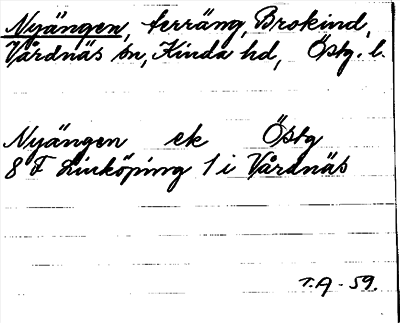 Nyängen, terräng, Brokind,
Vårdnäs sn, Kinda hd, Östg. l.
Nyängen ek Östg
8 F Linköping 1 i Vårdnäs
T.A - 59.